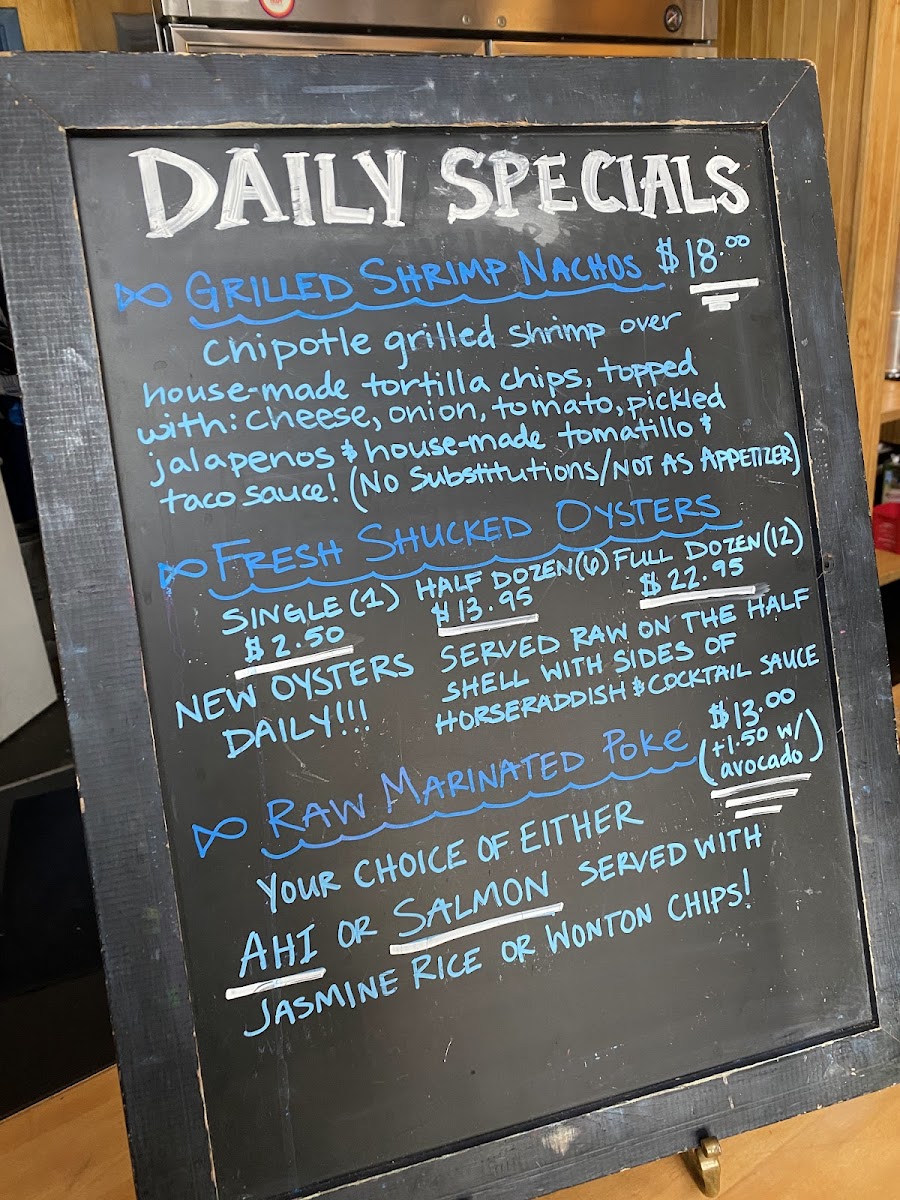 DAILY SPECIALS
GRILLED SHRIMP NACHOS $18.00
Chipotle grilled shrimp over
house-made tortilla chips, topped
with: cheese, onion, tomato, pickled
jalapenos & house-made tomatillo &
taco sauce! (NO Substitutions/NOT AS APPETIZER)
FRESH SHUCKED OYSTERS
SINGLE (1) HALF DOZEN (6) FULL DOZEN (12)
$2.50 $13.95 $22.95
NEW OYSTERS
DAILY!!!
SERVED RAW ON THE HALF
SHELL WITH SIDES OF
HORSERADDISH & COCKTAIL SAUCE
RAW MARINATED POKE $13.00
(+1.50 w/
avocado)
YOUR CHOICE OF EITHER
AHI OR SALMON SERVED WITH
JASMINE RICE OR WONTON CHIPS!